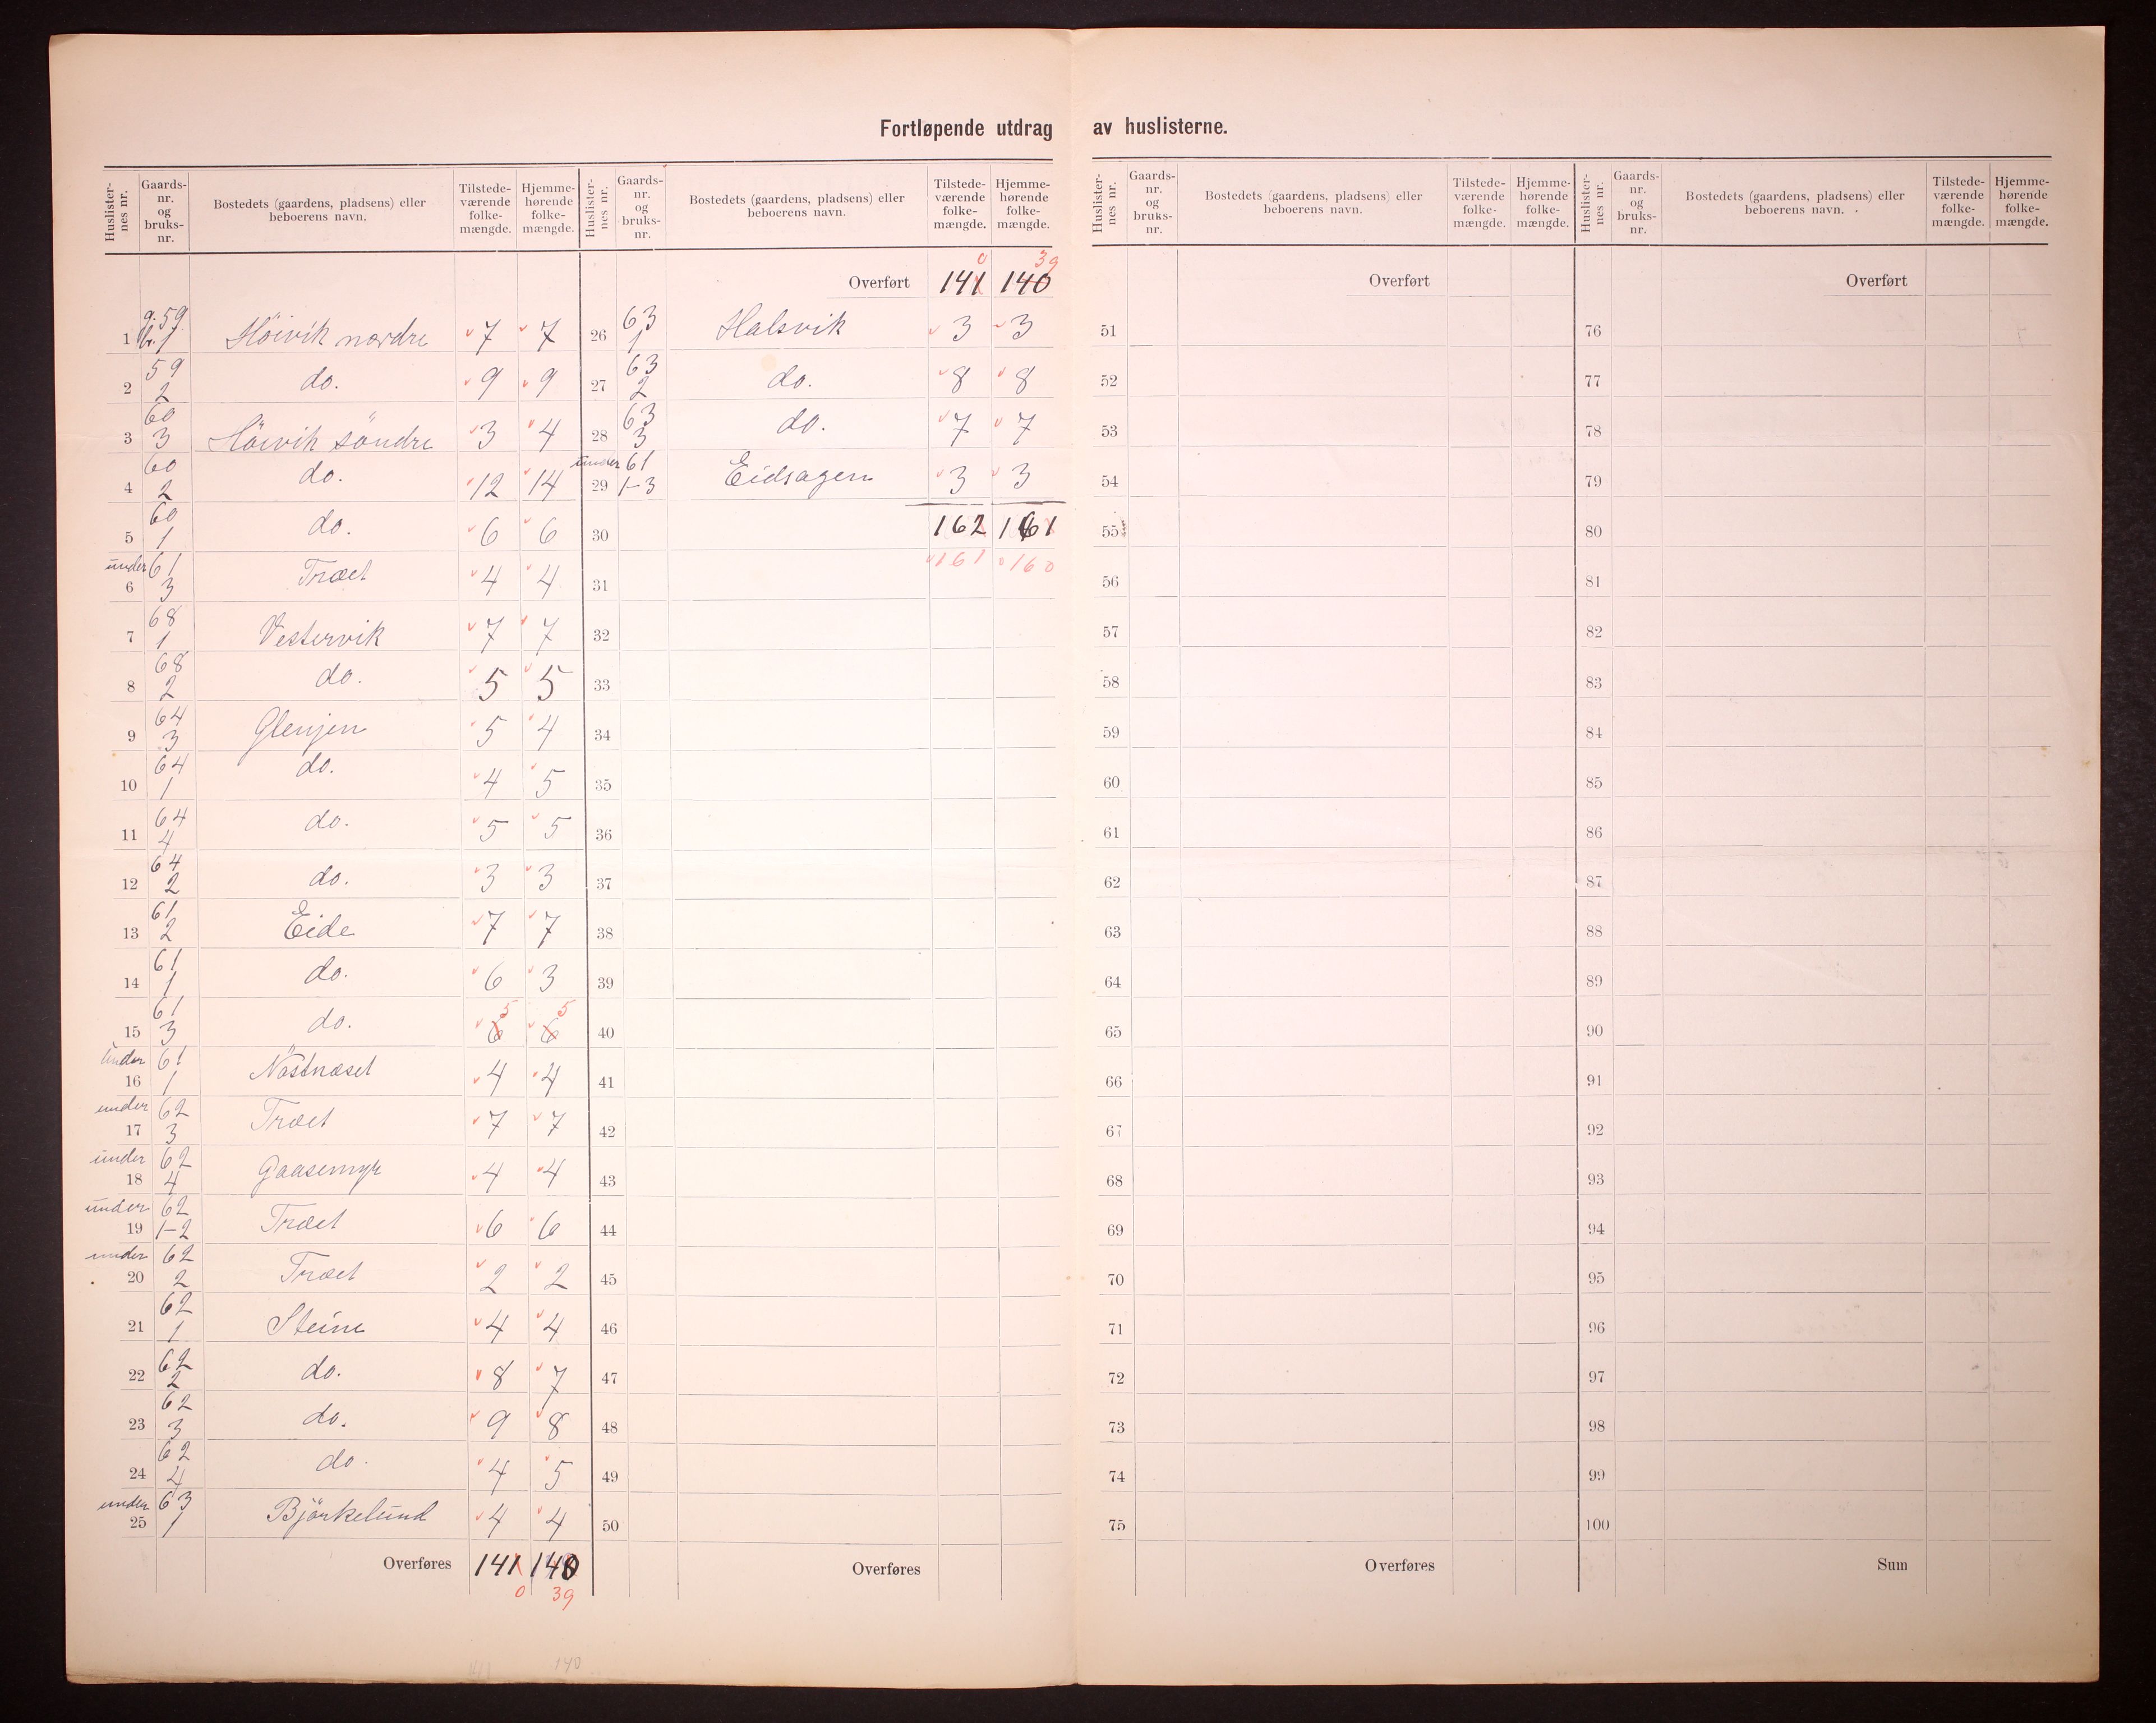 Fortløpende utdrag av huslisterne.
Huslister-nes nr. Gaards-nr. og bruks-nr. Bostedets (gaardens, pladsens) eller beboerens navn. Tilstede-værende folke-mængde. Hjemme-hørende folke-mængde.
1 g. 59 br. 1 Höivik nordre 7 7
2 59 2 do. 9 9
3 60 3 Höivik söndre 3 4
4 60 2 do. 12 14
5 60 1 do. 6 6
6 under 61 3 Træet 4 4
7 68 1 Vestervik 7 7
8 68 2 do. 5 5
9 64 3 Glenjen 5 4
10 64 1 do. 4 5
11 64 4 do. 5 5
12 64 2 do. 3 3
13 61 2 Eide 7 7
14 61 1 do. 6 3
15 61 3 do. 6 5 6 5
16 under 61 1 Nöstnæset 4 4
17 under 62 3 Træet 7 7
18 under 62 4 Gaasemyr 4 4
19 under 62 1-2 Træet 6 6
20 under 62 2 Træet 2 2
21 62 1 Steine 4 4
22 62 2 do. 8 7
23 62 3 do. 9 8
24 62 4 do. 4 5
25 under 63 1 Björkelund 4 4
Overføres 141 140
0 39
141 140
Huslister-nes nr. Gaards-nr. og bruks-nr. Bostedets (gaardens, pladsens) eller beboerens navn. Tilstede-værende folke-mængde. Hjemme-hørende folke-mængde.
0 39
Overført 141 140
26 63 1 Halsvik 3 3
27 63 2 do. 8 8
28 63 3 do. 7 7
29 under 61 1-3 Eidsagen 3 3
30 162 161
161 160
31
32
33
34
35
36
37
38
39
40
41
42
43
44
45
46
47
48
49
50
Overføres
Huslister-nes nr. Gaards-nr. og bruks-nr. Bostedets (gaardens, pladsens) eller beboerens navn. Tilstede-værende folke-mængde. Hjemme-hørende folke-mængde.
Overført
51
52
53
54
55
56
57
58
59
60
61
62
63
64
65
66
67
68
69
70
71
72
73
74
75
Overføres
Huslister-nes nr. Gaards-nr. og bruks-nr. Bostedets (gaardens, pladsens) eller beboerens navn. Tilstede-værende folke-mængde. Hjemme-hørende folke-mængde.
Overført
76
77
78
79
80
81
82
83
84
85
86
87
88
89
90
91
92
93
94
95
96
97
98
99
100
Sum